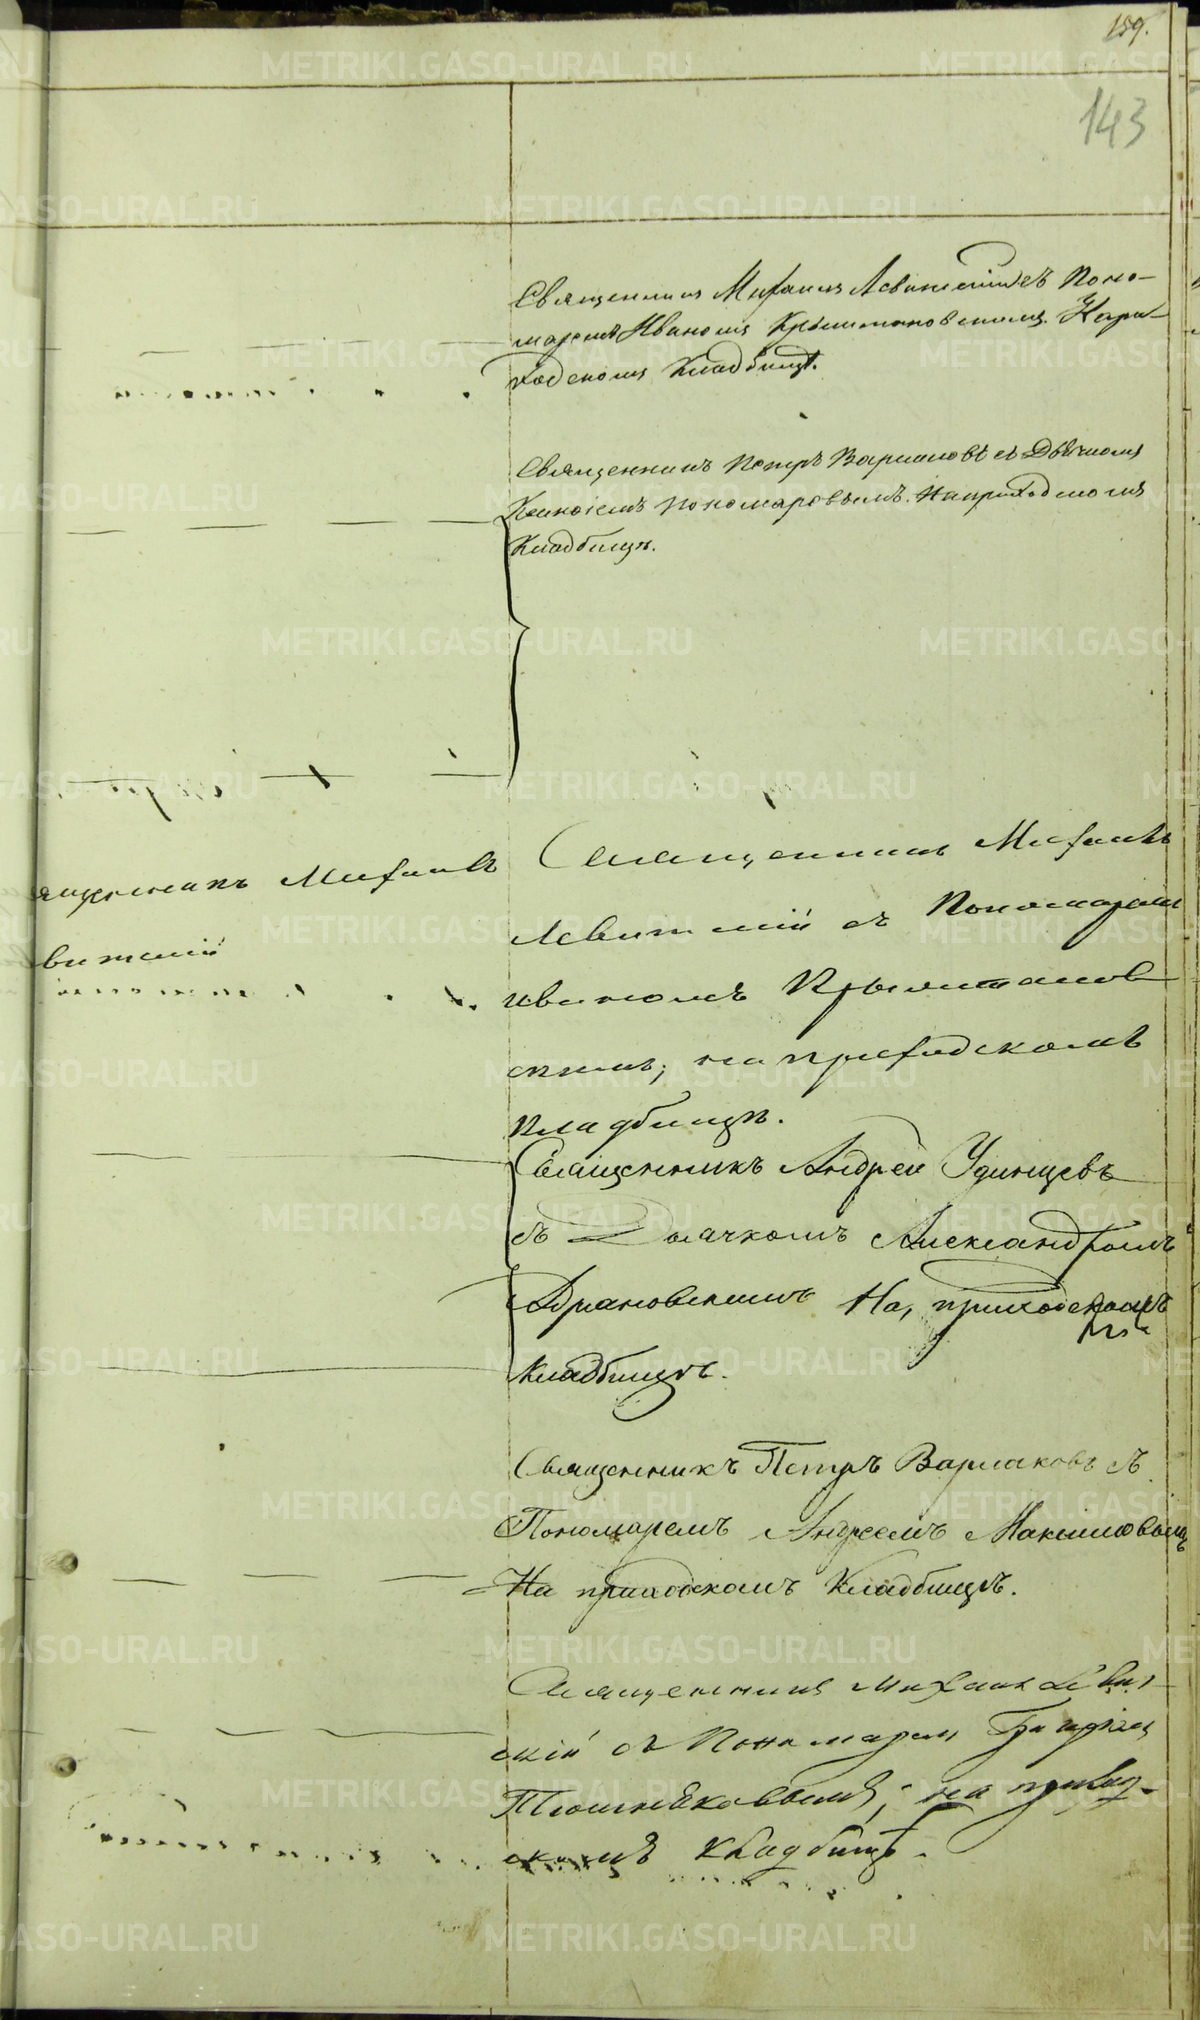 159.
143
Священникъ Михаилъ Левитскій съ Поно-
маремъ Иваномъ Крыштановскимъ. На при-
ходскомъ Кладбищѣ.
Священникъ Петръ Варлаковъ съ Дьячкомъ
Пономаревымъ. На приходскомъ
Кладбищѣ.
ященникъ Михаилъ
витскій
Священникъ Михаилъ
Левитскій съ Пономаремъ
Иваномъ Крыштанов
скимъ, на приходскомъ
кладбищѣ.
Священникъ Андрей Удинцевъ
съ Дьячкомъ Александромъ
Адріановскимъ На приходскомъ
Кладбищѣ.
Священникъ Петръ Варлаковъ съ
Пономаремъ Андреемъ Максимовымъ
На приходскомъ Кладбищѣ.
Священникъ Михаилъ Левит
скій съ Пономаремъ
на приход-
скомъ кладбищѣ.
METRIKI.GASO-URAL.RU